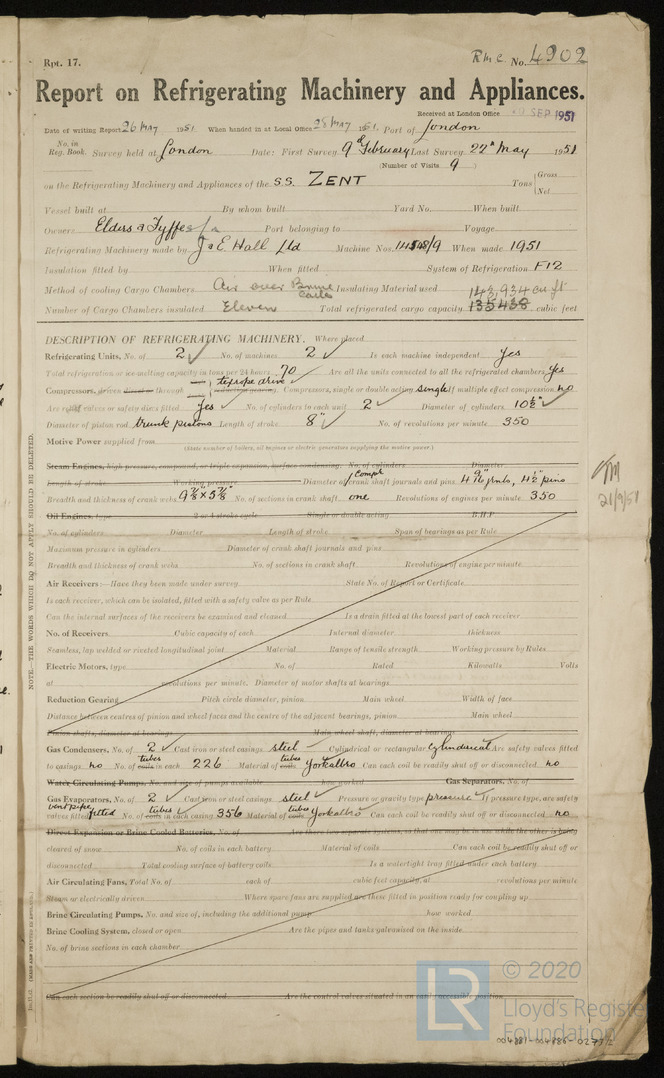 Rpt. 17.
R.M.C. No. 4902
Report on Refrigerating Machinery and Appliances.
Received at London Office SEP 1951
Date of writing Report 26 May 1951. When handed in at Local Office 28 May 1951. Port of London
No. in Reg. Book. Survey held at London Date: First Survey 9th February Last Survey 22nd May 1951
(Number of Visits 9 )
on the Refrigerating Machinery and Appliances of the S.S. ZENT Tons { Gross Net
Vessel built at By whom built Yard No. When built
Owners Elders & Fyffes Port belonging to Voyage
Refrigerating Machinery made by J & E Hall Ltd Machine Nos. When made 1951
Insulation fitted by When fitted System of Refrigeration F12
Method of cooling Cargo Chambers Air over Brine Coils Insulating Material used
143,934 cu ft
Number of Cargo Chambers insulated Eleven Total refrigerated cargo capacity 135438 cubic feet
DESCRIPTION OF REFRIGERATING MACHINERY. Where placed
Refrigerating Units, No. of 2 No. of machines 2 Is each machine independent Yes
Total refrigeration or ice-melting capacity in tons per 24 hours 70 Are all the units connected to all the refrigerated chambers Yes
Compressors, driven direct or through texrope drive reduction gearing. Compressors, single or double acting single If multiple effect compression no
Are relief valves or safety discs fitted Yes No. of cylinders to each unit 2 Diameter of cylinders 10½"
Diameter of piston rod trunk pistons Length of stroke 8" No. of revolutions per minute 350
Motive Power supplied from
(State number of boilers, oil engines or electric generators supplying the motive power.)
Steam Engines, high pressure, compound, or triple expansion, surface condensing. No. of cylinders Diameter
Length of stroke Working pressure Diameter of Compr crank shaft journals and pins 4½" pins
Breadth and thickness of crank webs No. of sections in crank shaft one Revolutions of engines per minute 350
Oil Engines, type 2 or 4 stroke cycle Single or double acting B.H.P.
No. of cylinders Diameter Length of stroke Span of bearings as per Rule
Maximum pressure in cylinders Diameter of crank shaft journals and pins
Breadth and thickness of crank webs No. of sections in crank shaft Revolutions of engine per minute
Air Receivers:—Have they been made under survey State No. of Report or Certificate
Is each receiver, which can be isolated, fitted with a safety valve as per Rule
Can the internal surfaces of the receivers be examined and cleaned Is a drain fitted at the lowest part of each receiver
No. of Receivers Cubic capacity of each Internal diameter thickness
Seamless, lap welded or riveted longitudinal joint Material Range of tensile strength Working pressure by Rules
Electric Motors, type No. of Rated Kilowatts Volts
at revolutions per minute. Diameter of motor shafts at bearings
Reduction Gearing Pitch circle diameter, pinion Main wheel Width of face
Distance between centres of pinion and wheel faces and the centre of the adjacent bearings, pinion Main wheel
Pinion shafts, diameter at bearings Main wheel shaft, diameter at bearings
Gas Condensers, No. of 2 Cast iron or steel casings steel Cylindrical or rectangular cylindrical Are safety valves fitted
to casings no No. of coils tubes in each 226 Material of coils tubes Yorkalbro Can each coil be readily shut off or disconnected no
Water Circulating Pumps, No. and size of pumps available how worked Gas Separators, No. of
Gas Evaporators, No. of 2 Cast iron or steel casings steel Pressure or gravity type pressure If pressure type, are safety
valves fitted fitted No. of coils tubes in each casing 356 Material of coils tubes Yorkalbro Can each coil be readily shut off or disconnected no
Direct Expansion or Brine Cooled Batteries, No. of Are there two separate systems, so that one may be in use while the other is being
cleared of snow No. of coils in each battery Material of coils Can each coil be readily shut off or
disconnected Total cooling surface of battery coils Is a watertight tray fitted under each battery
Air Circulating Fans, Total No. of each of cubic feet capacity, at revolutions per minute
Steam or electrically driven Where spare fans are supplied are these fitted in position ready for coupling up
Brine Circulating Pumps, No. and size of, including the additional pump how worked
Brine Cooling System, closed or open Are the pipes and tanks galvanised on the inside
No. of brine sections in each chamber
Can each section be readily shut off or disconnected Are the control valves situated in an easily accessible position
NOTE.—THE WORDS WHICH DO NOT APPLY SHOULD BE DELETED.
21/9/51
LR
© 2020
Lloyd's Register
Foundation
004881-004886-0275